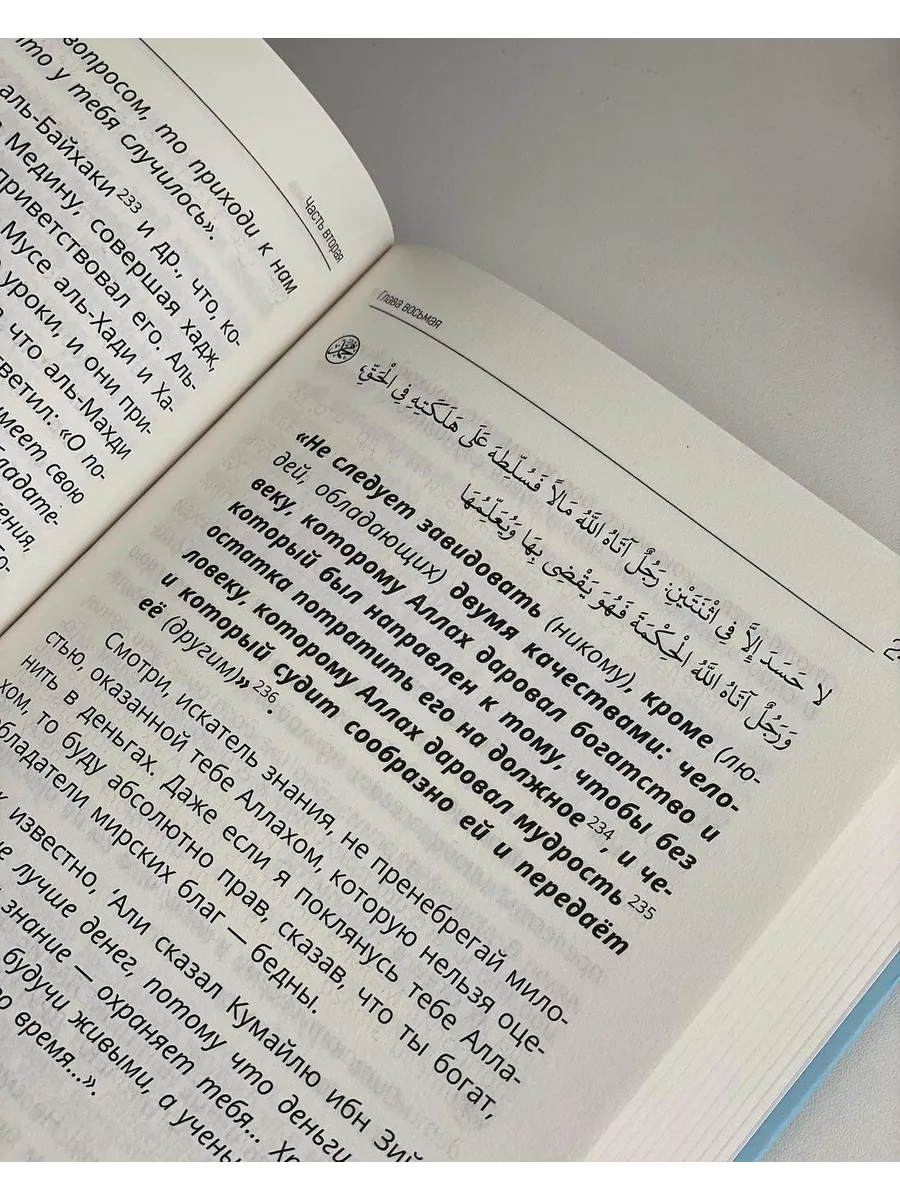 вопросом, то приходи к нам
что у тебя случилось».
аль-Байхаки 233 и др., что, ко-
Медину, совершая хадж,
приветствовал его. Аль-
Мусе аль-Хади и Ха-
уроки, и они при-
что аль-Махди
ответил: «О по-
имеет свою
Часть вторая
Глава восьмая
لا حَسَدَ إِلاَّ فِي اثْنَتَيْنِ: رَجُلٌ آتَاهُ اللَّهُ مَالاً فَسُلِّطَهُ عَلَى هَلَكَتِهِ فِي الْحَقِّ،
وَرَجُلٌ آتَاهُ اللَّهُ الْحِكْمَةَ فَهُوَ يَقْضِي بِهَا وَيُعَلِّمُهَا
«Не следует завидовать (никому), кроме (лю-
дей, обладающих) двумя качествами: чело-
веку, которому Аллах даровал богатство и
который был направлен к тому, чтобы без
остатка потратить его на должное 234, и че-
ловеку, которому Аллах даровал мудрость 235
и который судит сообразно ей и передаёт
её (другим)» 236.
Смотри, искатель знания, не пренебрегай мило-
стью, оказанной тебе Аллахом, которую нельзя оце-
нить в деньгах. Даже если я поклянусь тебе Алла-
хом, то буду абсолютно прав, сказав, что ты богат,
обладатели мирских благ — бедны.
известно, ‘Али сказал Кумайлю ибн Зий
лучше денег, потому что деньги
знание — охраняет тебя...
будучи живыми, а учены
время...».